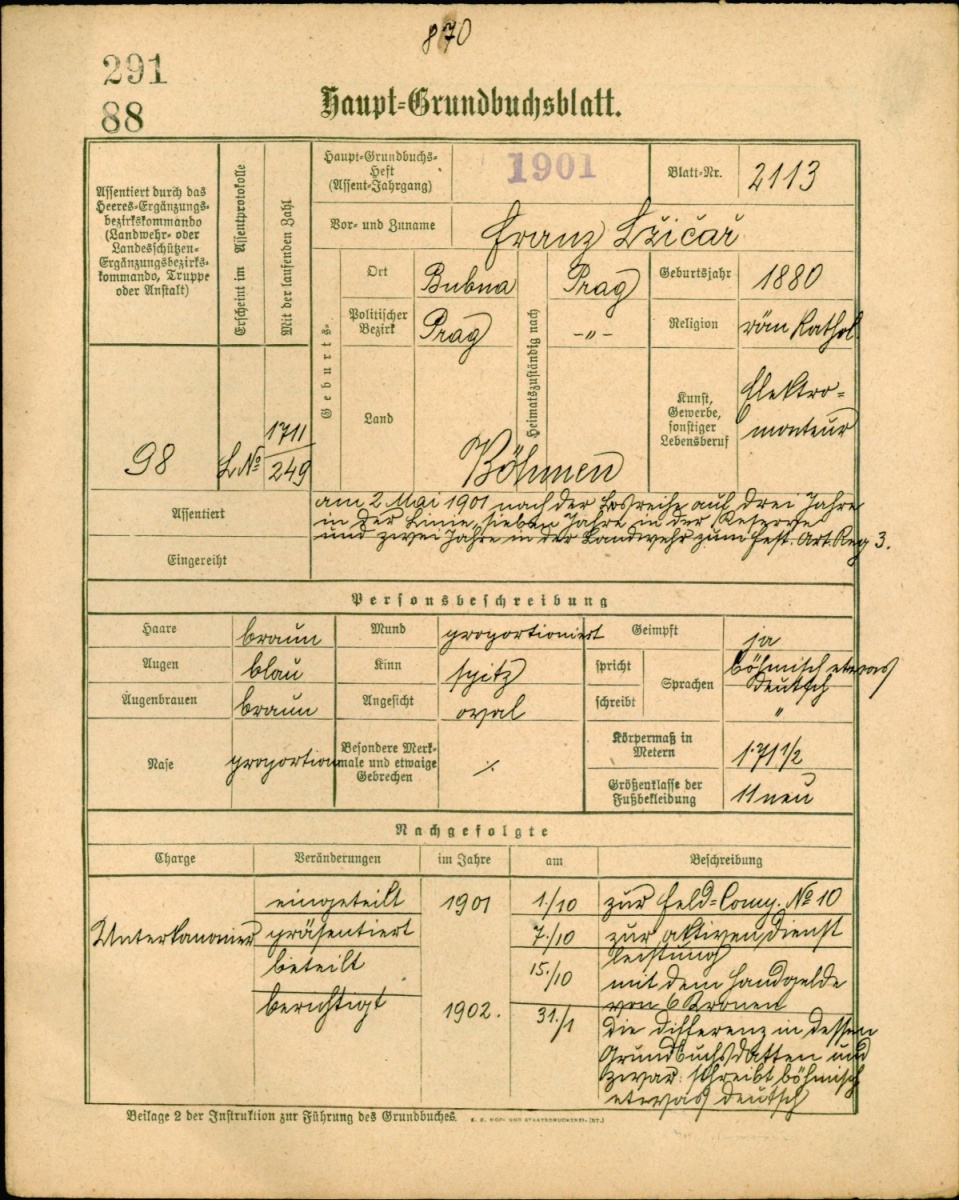 870
291
88
Haupt=Grundbuchsblatt.
Assentiert durch das
Heeres-Ergänzungs-
bezirkskommando
(Landwehr- oder
Landesschützen-
Ergänzungsbezirks-
kommando, Truppe
oder Anstalt)
Erscheint im Assentprotokolle
Mit der laufenden Zahl
98
LNo
1711
249
Haupt-Grundbuchs-
Heft
(Assent-Jahrgang)
1901
Blatt-Nr.
2113
Vor- und Zuname
Franz Lžičař
Geburts-
Ort
Bubna
Heimatszuständig nach
Prag
Geburtsjahr
1880
Politischer
Bezirk
Prag
-„-
Religion
röm Kathol.
Land
Böhmen
Kunst,
Gewerbe,
sonstiger
Lebensberuf
Elektro=
monteur
Assentiert
am 2. Mai 1901 nach der Losreihe auf drei Jahre
in der Linie, sieben Jahre in der Reserve
und zwei Jahre in der Landwehr zum Fest. Art. Reg 3.
Eingereiht
Personsbeschreibung
Haare
braun
Mund
proportioniert
Geimpft
ja
Augen
blau
Kinn
spitz
spricht
Sprachen
böhmisch etwas
deutsch
Augenbrauen
braun
Angesicht
oval
schreibt
"
Nase
proportion
Besondere Merk-
male und etwaige
Gebrechen
./.
Körpermaß in
Metern
1·71 1/2
Größenklasse der
Fußbekleidung
11 neu
Nachgefolgte
Charge
Veränderungen
im Jahre
am
Beschreibung
eingeteilt
1901
1./10
zur Feld=Comp. No 10
Unterkanonier
präsentiert
7./10
zur aktiven Dienst
leistung
beteilt
15./10
mit dem Handgelde
von 6 Kronen
berichtigt
1902.
31./1
die Differenz in dessen
Grundbuchsdatten und
zwar: schreibt böhmisch
etwas deutsch
Beilage 2 der Instruktion zur Führung des Grundbuches.
K. K. HOF- UND STAATSDRUCKEREI. (ST.)